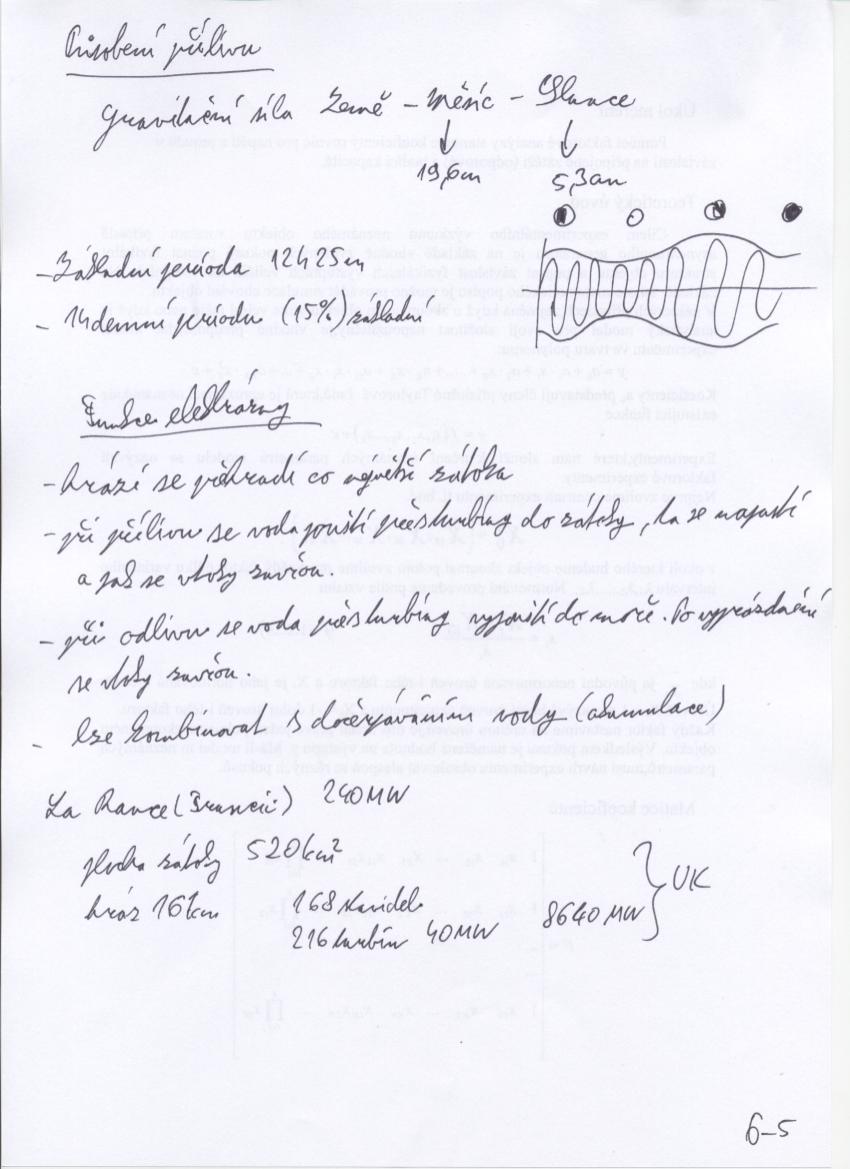 Působení přílivu
Gravitační síla Země – Měsíc – Slunce
19,6cm 5,3cm
– Základní perioda 12h 25min
– 14denní perioda (15%) základní
Funkce elektrárny
– hrází se přehradí co největší zátoka
– při přílivu se voda pouští přes turbíny do zátoky, ta se napustí
a pak se vtoky zavřou.
– při odlivu se voda přes turbíny vypouští do moře. Po vyprázdnění
se vtoky zavřou.
– lze kombinovat s dočerpáváním vody (akumulace)
La Rance (Francie) 240MW
plocha zátoky 520km²
hráz 16km 168 stavidel
216 turbín 40MW 8640 MW } UK
6–5